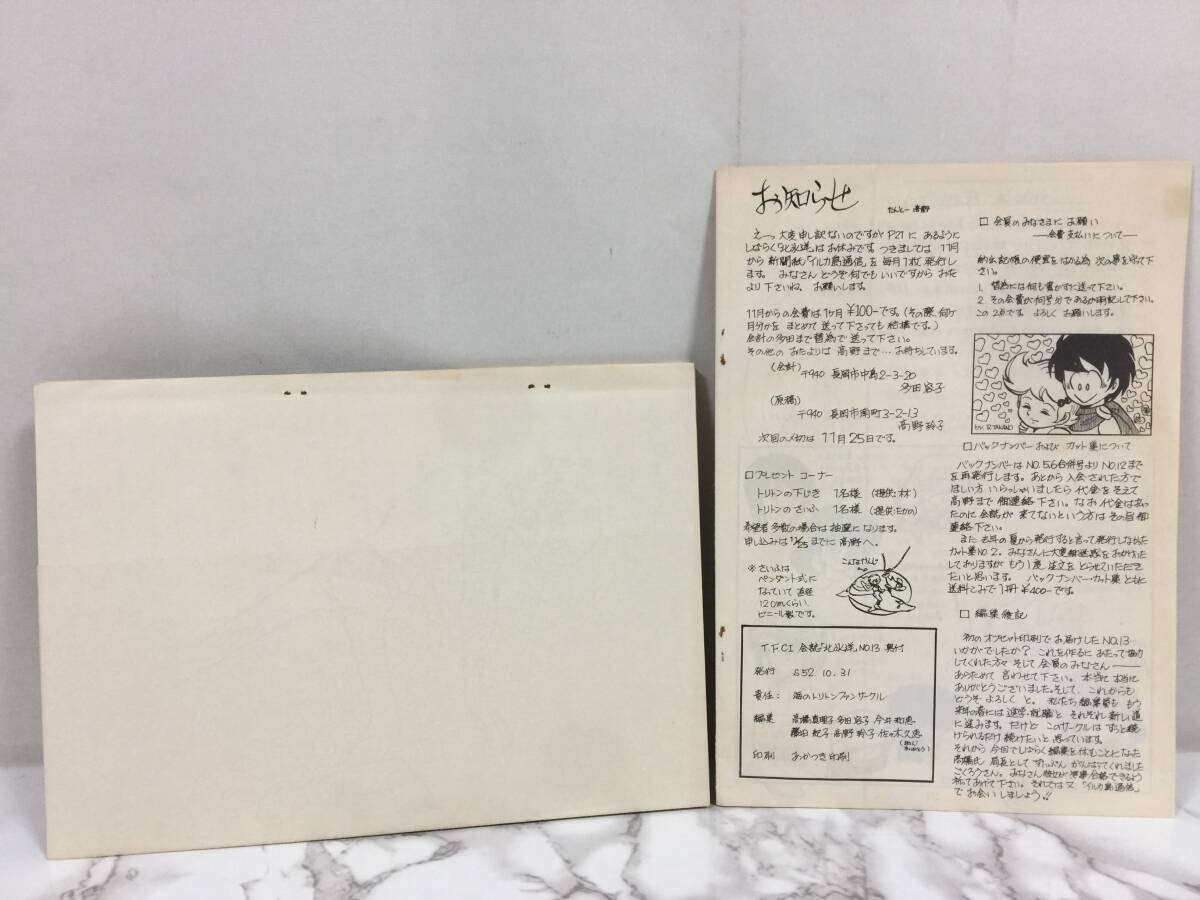 お知らせ
たんとー 高野
えーっ 大変申し訳ないのですが P21に あるように
しばらく「北氷洋」はお休みです。つきましては 11月
から 新聞紙「イルカ島通信」を 毎月1枚 発行し
ます。 みなさん どうぞ 何でも いいですから おた
より下さいね。 お願いします。
11月からの会費は1ヶ月 ¥100-です。(その際、何ヶ
月分かを まとめて 送って下さっても 結構です。)
会計の多田まで 替為で 送って下さい。
その他の おたよりは 高野まで… お待ちしています。
(会計)
〒940 長岡市中島2-3-20
多田容子
(原稿)
〒940 長岡市南町3-2-13
高野玲子
次回の〆切は 11月25日です。
□プレゼント コーナー
トリトンの下じき 1名様 (提供:木村)
トリトンのさいふ 1名様 (提供:たかの)
希望者多数の場合は 抽選になります。
申し込みは 11/25までに 高野へ。
※さいふは
ペンダント式に
なっていて 直径
120mくらい
ビニール製です。
こんなかんじ
T.F.C.I 会誌「北氷洋」NO.13 奥付
発行 S52.10.31
責任: 海のトリトンファンサークル
編集 高橋真理子 多田容子 今井和恵
藤田紀子 高野玲子 佐々木久恵
印刷 あかつき印刷
□ 会員のみなさまに お願い
——会費支払いについて——
納会記帳の便宜をはかる為 次の事を守って下
さい。
1. 替為には何も書かずに送って下さい。
2. その会費が何号分であるか明記して下さい。
この2点です。よろしく お願いします。
by. R.TAKANO
□バックナンバーおよび カット集について
バックナンバーは NO.5.6合併号より NO.12まで
を再発行します。あとから 入会された方で
ほしい方 いらっしゃいましたら 代金をそえて
高野まで 御連絡 下さい。なお 代金ははらっ
たのに 会誌が 来てないという方は その旨 御
連絡下さい。
また 去年の夏から発行すると言って発行しなかった
カット集NO.2。みなさんに大変御迷惑をおかけいた
しておりますが もう1度 注文を とらせていただき
たいと思います。 バックナンバー・カット集 ともに
送料こみで 1冊 ¥400-です。
□ 編集後記
初の オフセット印刷で お届けした NO.13…
いかがでしたか? これを作るに あたって 協力
してくれた方々 そして 会員のみなさん——
あらためて 言わせて下さい。本当に 本当に
ありがとうございました。そして、これからも
どうぞ よろしく と。 私たち 編集員も もう
来年の春には「進学・就職」と それぞれ 新しい道
に進みます。だけど このサークルは ずっと続
けられるだけ 続けたいと 思っています。
それから 今回でしばらく 編集を休むことになった
高橋氏 局長として ずいぶん がんばってくれました
ごくろうさん。みなさん 彼女が 見事合格できるよう
祈ってあげて下さい。それでは又「イルカ島通信」
で お会い しましょう!!